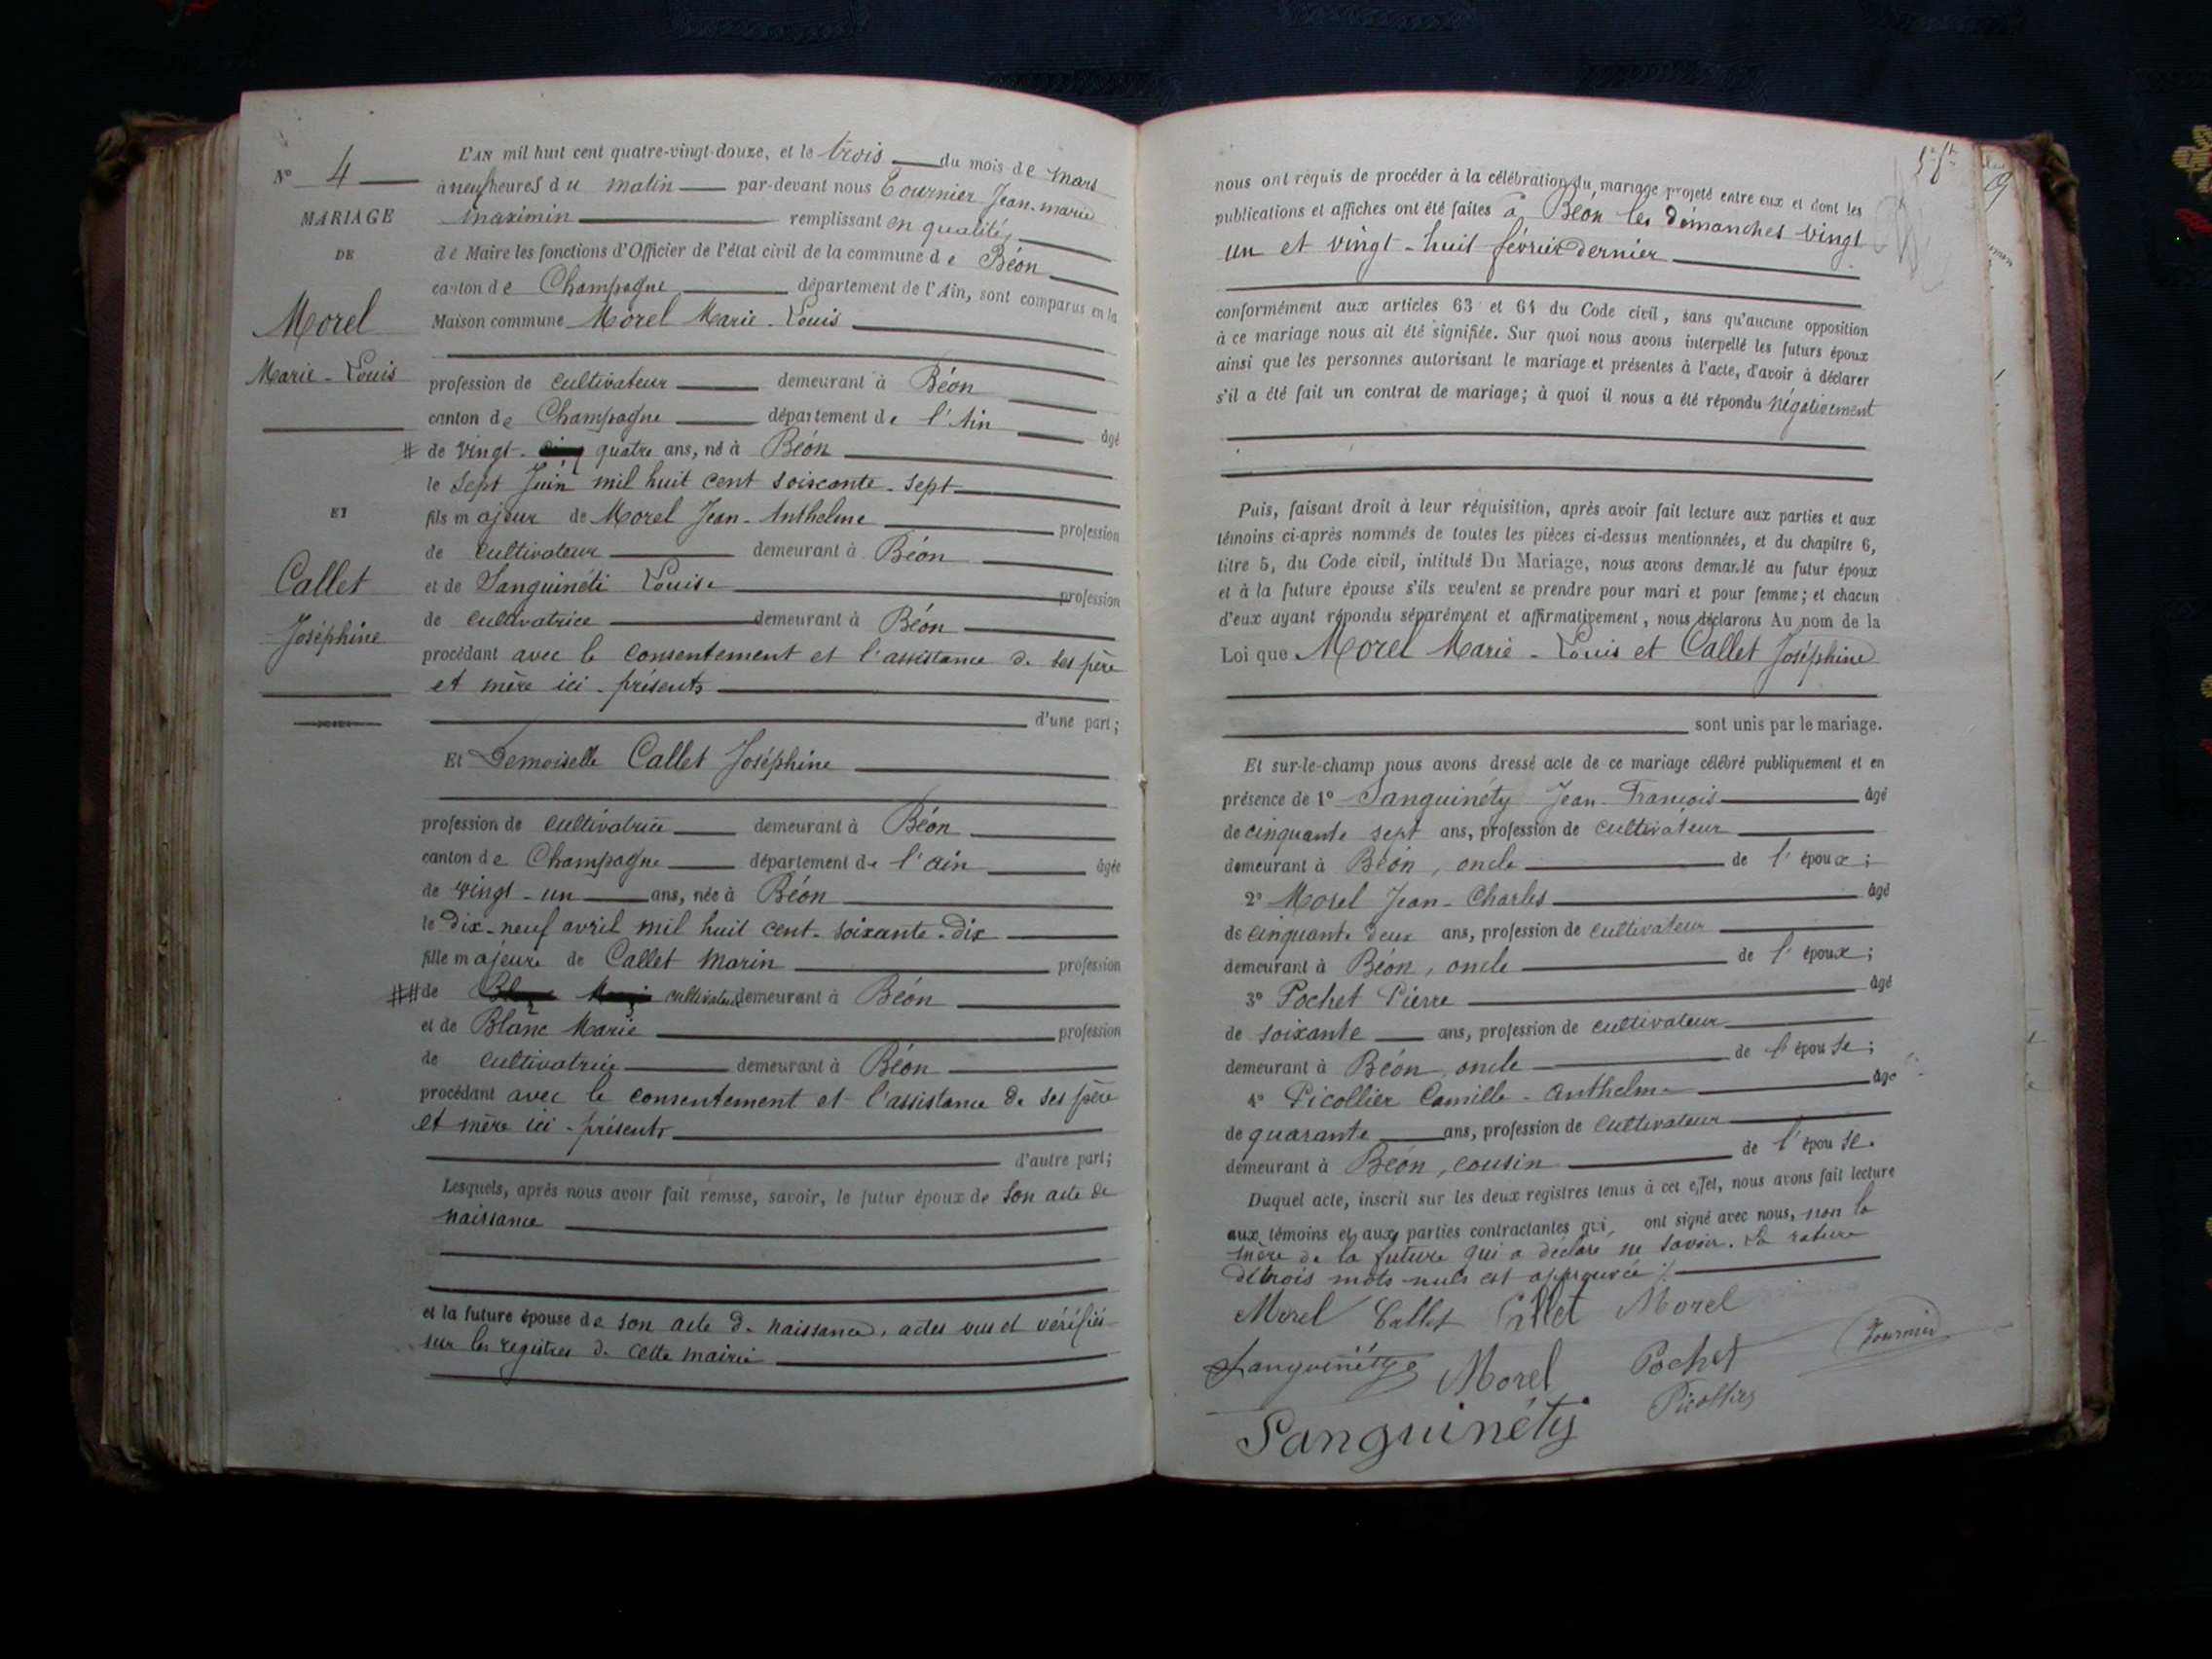 N° 4
MARIAGE
DE
Morel
Marie-Louis
ET
Callet
Joséphine
L'AN mil huit cent quatre-vingt-douze, et le trois du mois de mars
à neuf heures du matin par-devant nous Tournier Jean-marie
maximin remplissant en qualité
de Maire les fonctions d'Officier de l'état civil de la commune de Béon
canton de Champagne département de l'Ain, sont comparus en la
Maison commune Morel Marie-Louis
profession de cultivateur demeurant à Béon
canton de Champagne département de l'Ain âgé
# de vingt- quatre ans, né à Béon
le sept Juin mil huit cent soixante-sept
fils majeur de Morel Jean-Anthelme profession
de cultivateur demeurant à Béon
et de Sanguinéti Louise profession
de cultivatrice demeurant à Béon
procédant avec le consentement et l'assistance de ses père
et mère ici-présents
d'une part;
Et Demoiselle Callet Joséphine
profession de cultivatrice demeurant à Béon
canton de Champagne département de l'ain âgée
de vingt-un ans, née à Béon
le dix-neuf avril mil huit cent-soixante-dix
fille majeure de Callet Marin profession
## de cultivateur demeurant à Béon
et de Blanc Marie profession
de cultivatrice demeurant à Béon
procédant avec le consentement et l'assistance de ses père
et mère ici-présents
d'autre part;
Lesquels, après nous avoir fait remise, savoir, le futur époux de son acte de
naissance
et la future épouse de son acte de naissance, actes vus et vérifiés
sur les registres de cette mairie
nous ont requis de procéder à la célébration du mariage projeté entre eux et dont les
publications et affiches ont été faites à Béon les dimanches vingt
un et vingt-huit février dernier
conformément aux articles 63 et 64 du Code civil, sans qu'aucune opposition
à ce mariage nous ait été signifiée. Sur quoi nous avons interpellé les futurs époux
ainsi que les personnes autorisant le mariage et présentes à l'acte, d'avoir à déclarer
s'il a été fait un contrat de mariage; à quoi il nous a été répondu négativement
Puis, faisant droit à leur réquisition, après avoir fait lecture aux parties et aux
témoins ci-après nommés de toutes les pièces ci-dessus mentionnées, et du chapitre 6,
titre 5, du Code civil, intitulé Du Mariage, nous avons demandé au futur époux
et à la future épouse s'ils veulent se prendre pour mari et pour femme; et chacun
d'eux ayant répondu séparément et affirmativement, nous déclarons Au nom de la
Loi que Morel Marie-Louis et Callet Joséphine
sont unis par le mariage.
Et sur-le-champ nous avons dressé acte de ce mariage célébré publiquement et en
présence de 1° Sanguinéty Jean-François âgé
de cinquante sept ans, profession de cultivateur
demeurant à Béon, oncle de l'époux;
2° Morel Jean-Charles âgé
de cinquante deux ans, profession de cultivateur
demeurant à Béon, oncle de l'époux;
3° Pochet Pierre âgé
de soixante ans, profession de cultivateur
demeurant à Béon, oncle de l'épouse;
4° Picollier Camille-Anthelme âgé
de quarante ans, profession de cultivateur
demeurant à Béon, cousin de l'épouse.
Duquel acte, inscrit sur les deux registres tenus à cet effet, nous avons fait lecture
aux témoins et aux parties contractantes qui ont signé avec nous, non la
mère de la future qui a déclaré ne savoir. La rature
de trois mots nuls est approuvée
Morel Callet Callet Morel
Sanguinéty Morel Pochet Tournier
Picollier
Sanguinéty